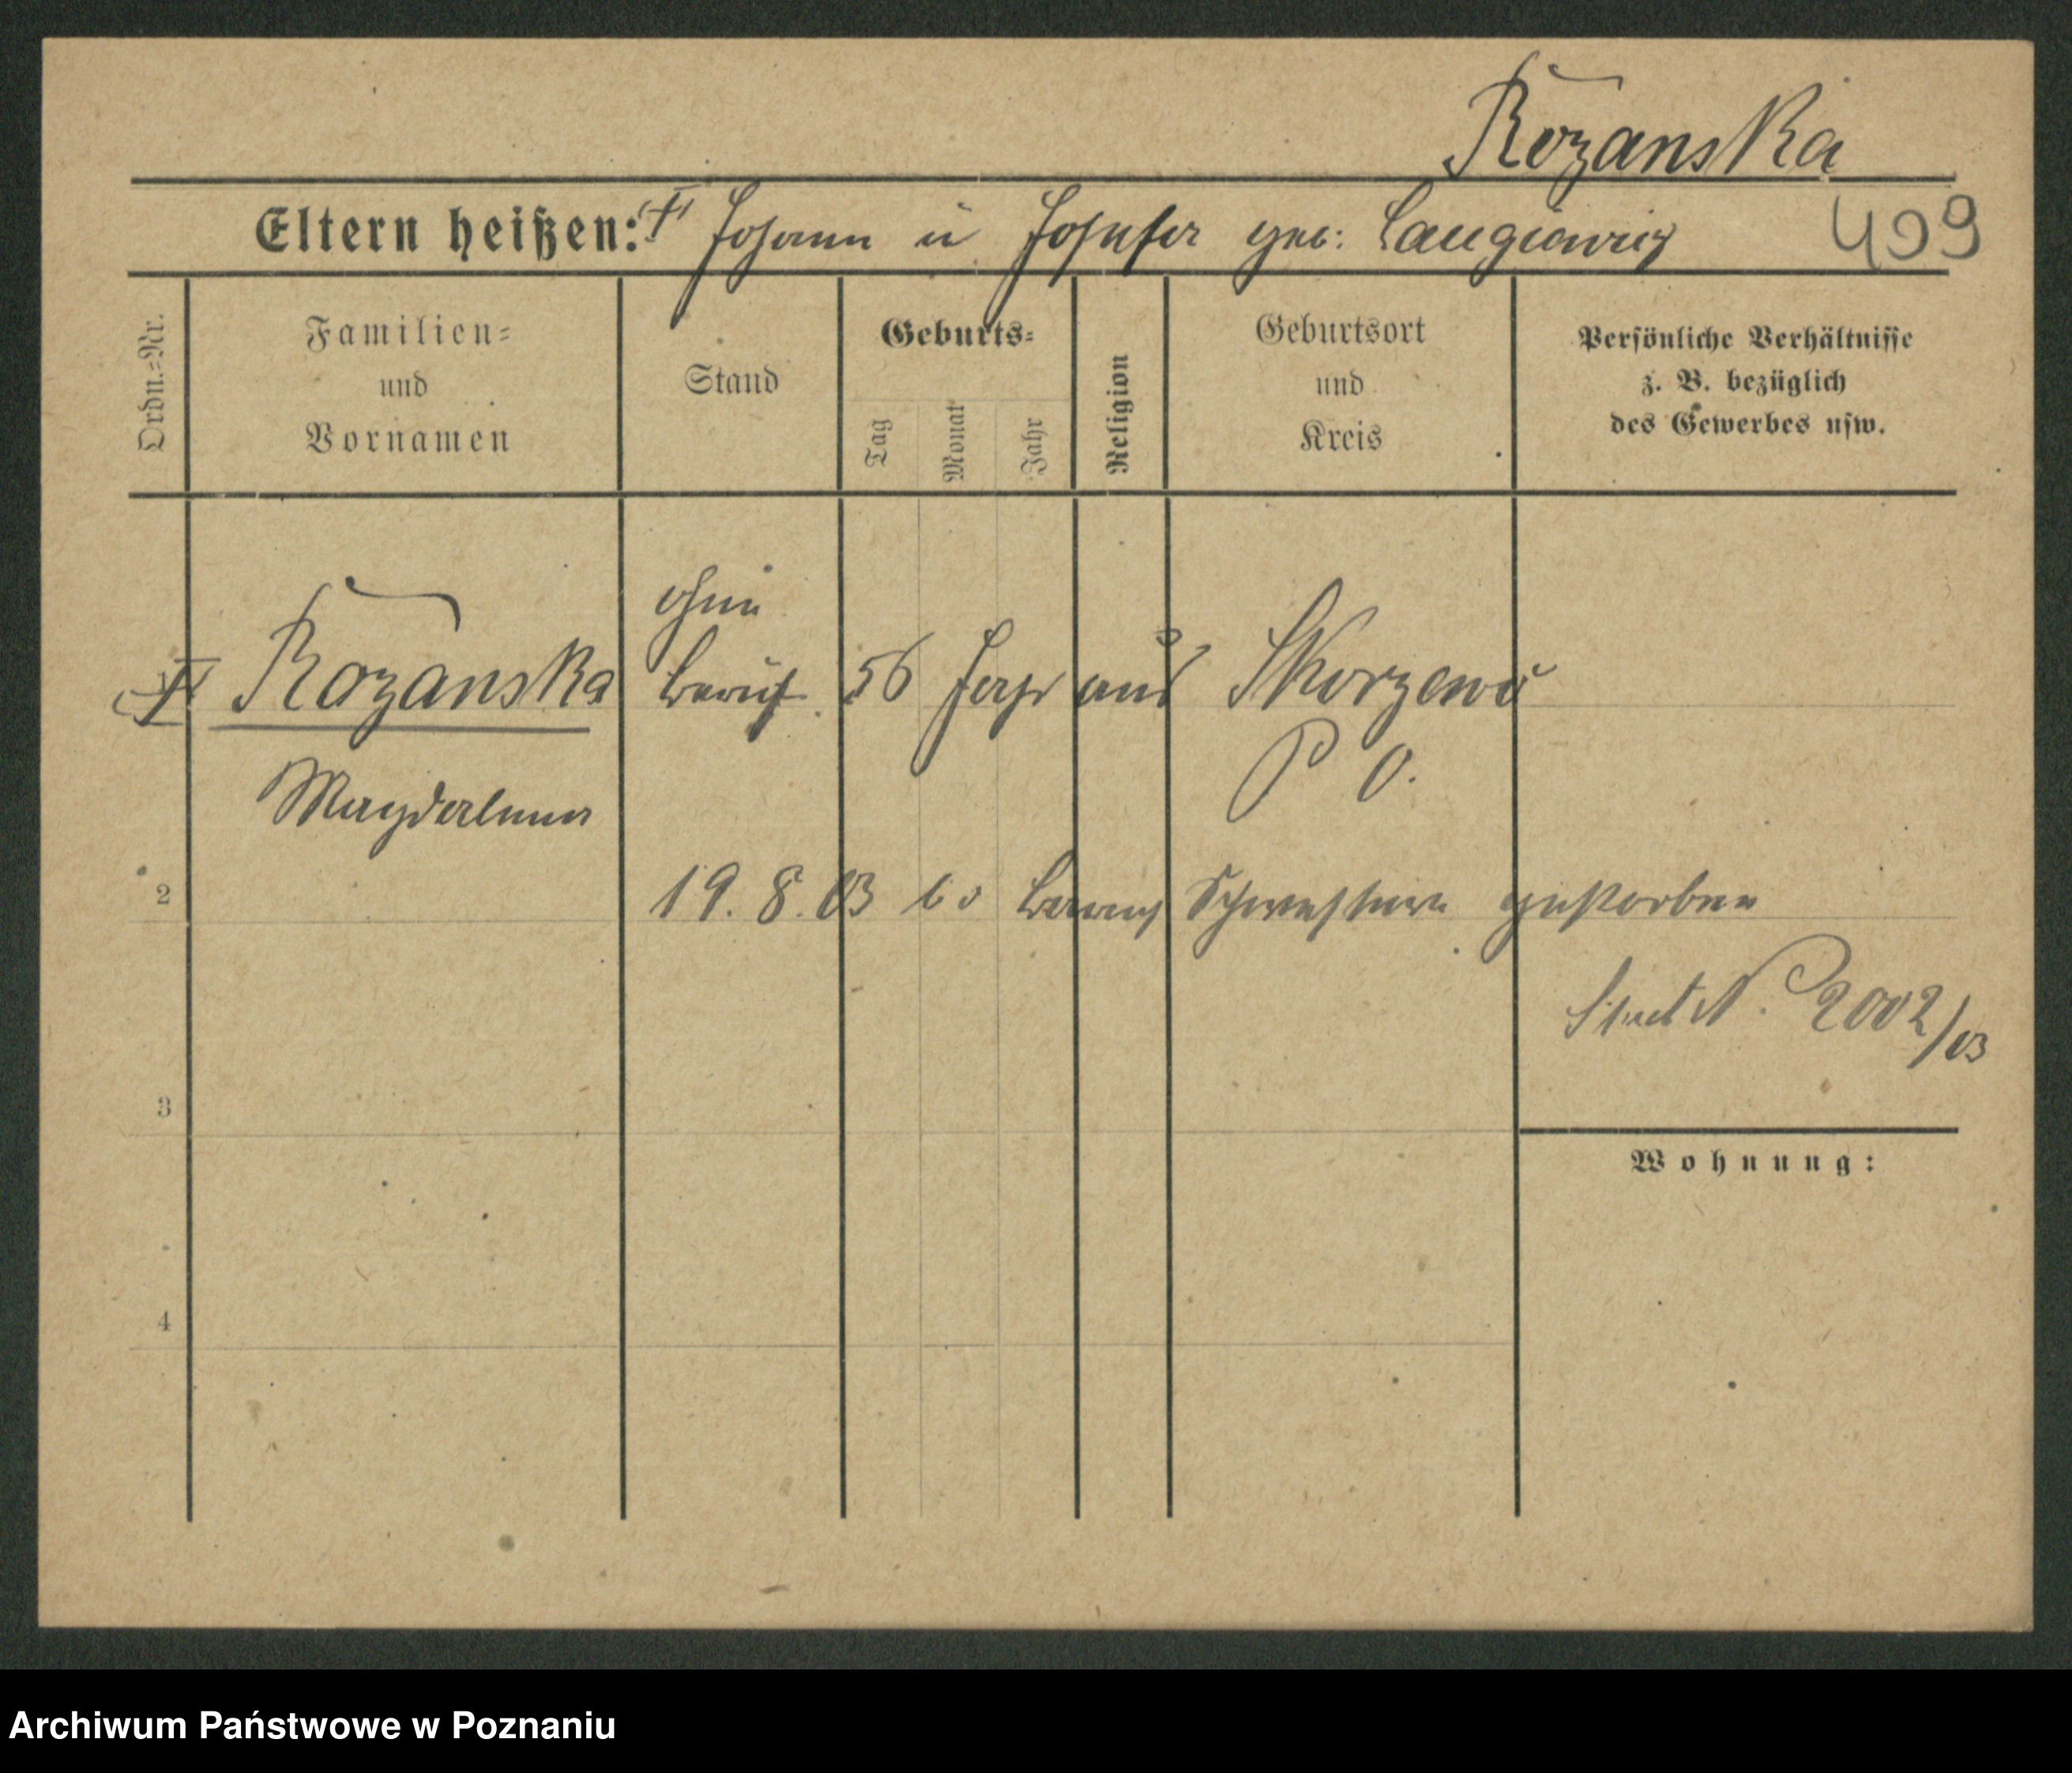 Rozanska
Eltern heißen: † Johann u Josefa geb: Langiewicz
499
Ordn.=Nr.
Familien=
und
Vornamen
Stand
Geburts=
Tag
Monat
Jahr
Religion
Geburtsort
und
Kreis
Persönliche Verhältnisse
z. B. bezüglich
des Gewerbes usw.
ohne
† Rozanska Beruf. 56 Jahr aus Skorzewo
P O.
Magdalena
2
19. 8. 03 Schwestern gestorben
N. 2002/03
3
Wohnung:
4
Archiwum Państwowe w Poznaniu